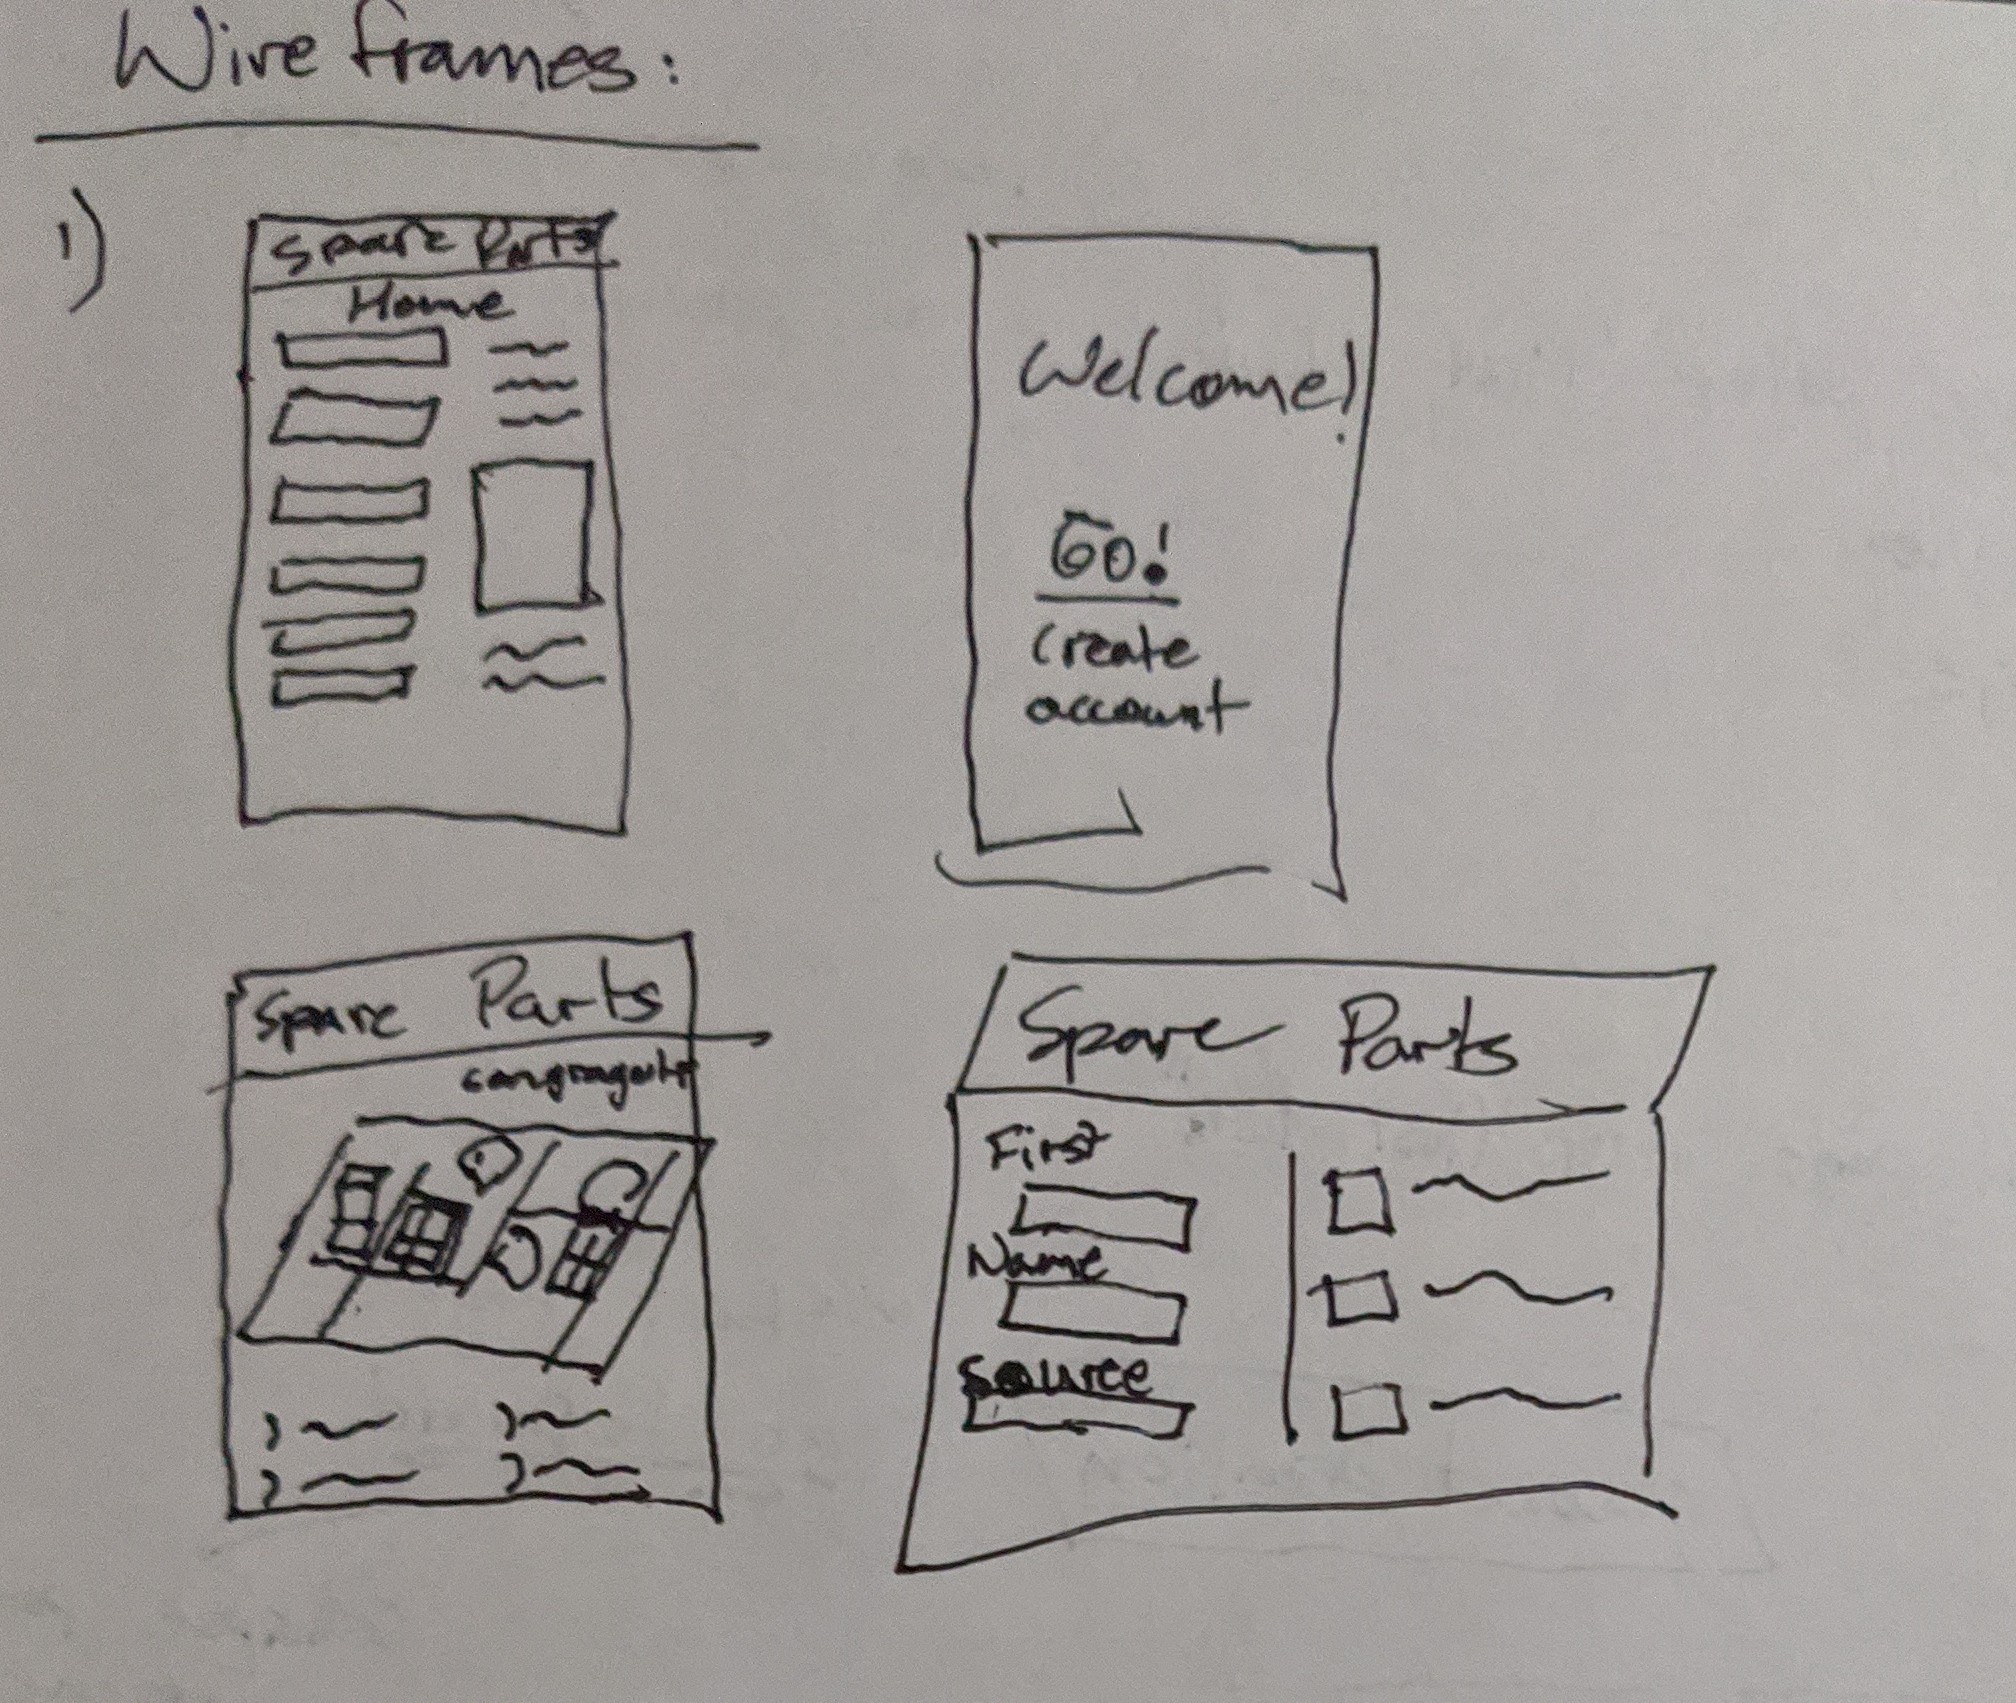 Wireframes:
1)
Spare Parts
Home
Welcome!
GO!
Create
account
Spare Parts
Spare Parts
First
Name
Source